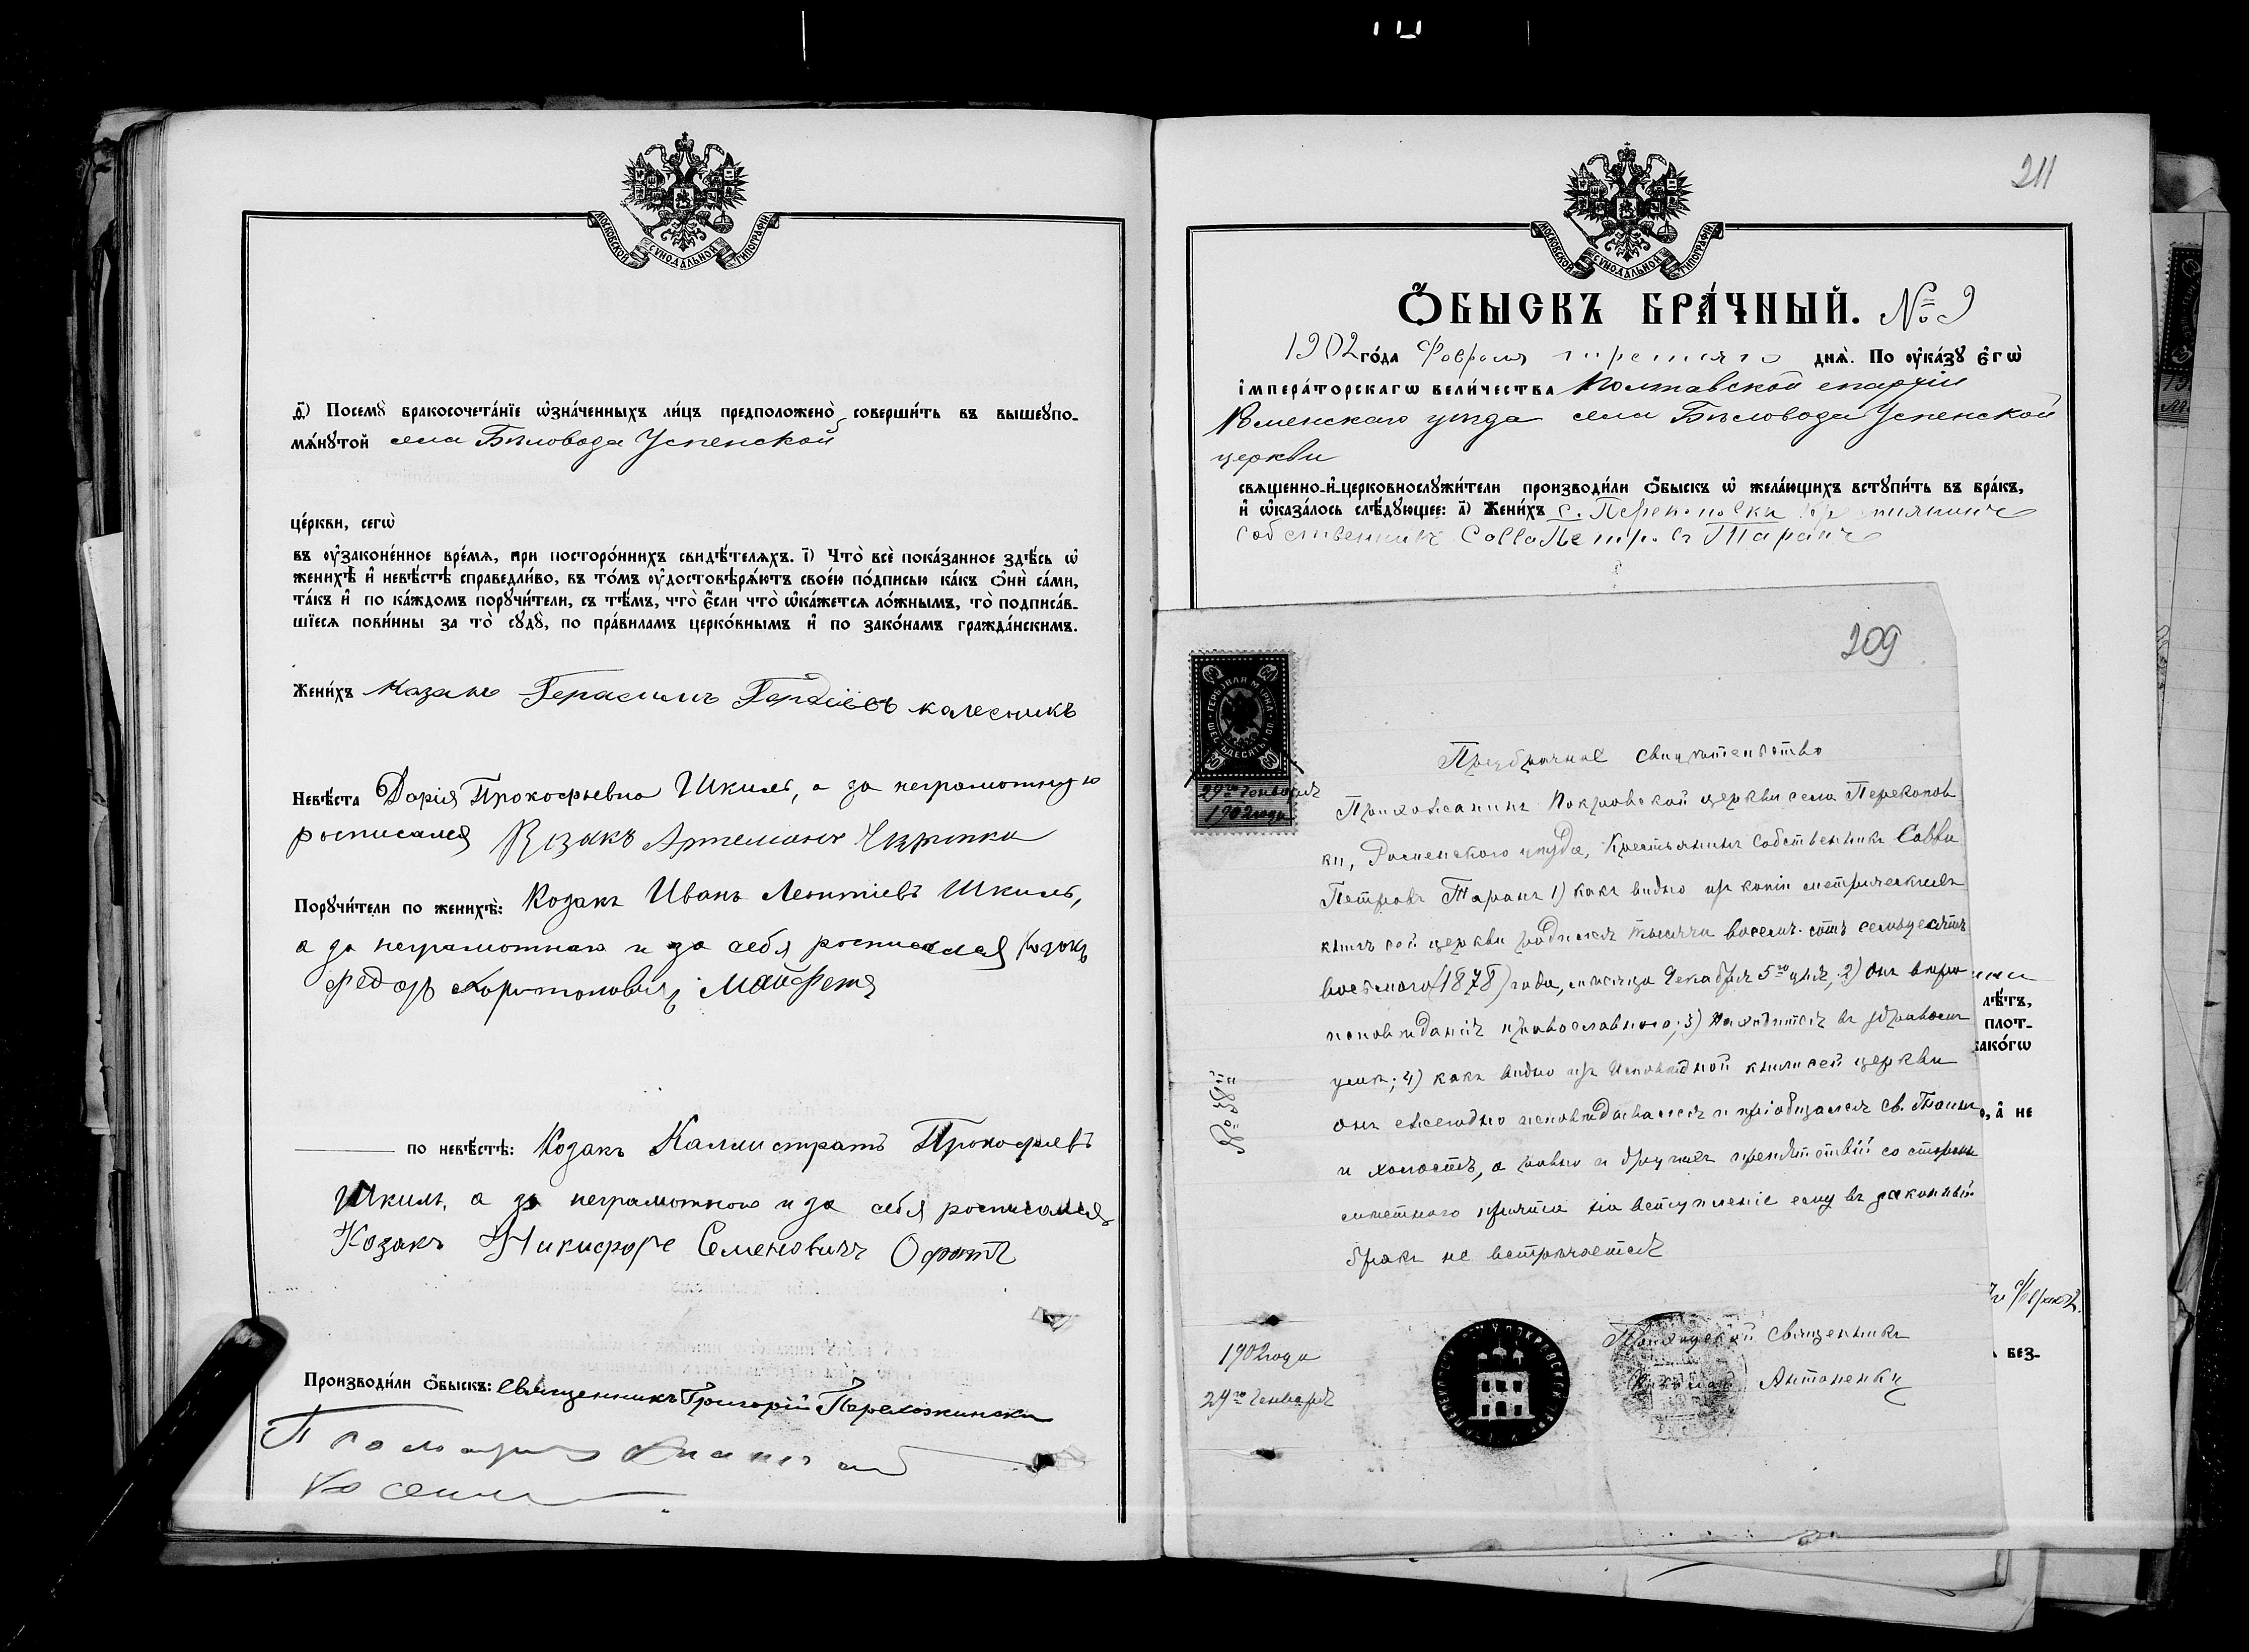 МОСКОВСКОЙ СУНОДАЛЬНОЙ ТИПОГРАФІИ
ѳ҃) Посемꙋ бракосочета́нїе ѡ҆зна́ченныхъ ли́цъ предположено̀ соверши́ть въ вышеꙋпо-
мѧ́нꙋтой села Бѣловода Успенской
це́ркви, сегѡ̀
въ ᲂу҆зако́ненное вре́мѧ, при посторо́ннихъ свидѣ́телѧхъ. і҃) Что̀ всѐ пока́занное здѣ́сь ѡ҆
женихѣ̀ и҆ невѣ́стѣ справедли́во, въ то́мъ ᲂу҆достовѣрѧ́ютъ свое́ю по́дписью ка́къ ѻ҆нѝ са́ми,
та́къ и҆ по ка́ждомъ порꙋчи́тели, съ тѣ́мъ, что̀ є҆́сли что̀ ѡ҆ка́жетсѧ ло́жнымъ, то̀ подписа́в-
шїесѧ пови́нны за то̀ сꙋдꙋ̀, по пра́виламъ церко́внымъ и҆ по зако́намъ гражда́нскимъ.
Жени́хъ Козакъ Герасимъ Гордіевъ колесникъ
Невѣ́ста Дарія Прокофьевна Шкиль, а за неграмотную
росписался Козакъ Артемонъ
Порꙋчи́тели по женихѣ̀: Козакъ Иванъ Леонтіевъ Шкиль,
а за неграмотнаго и за себя росписался Козакъ
Федоръ Харитоновичъ Майфетъ
по невѣ́стѣ: Козакъ Каллистратъ Прокофьевъ
Шкиль, а за неграмотного и за себя росписался
Козакъ Никифоръ Семеновичъ
Производи́ли ѻ҆́быскъ: Священникъ Григорій
Псаломщикъ
211
МОСКОВСКОЙ СУНОДАЛЬНОЙ ТИПОГРАФІИ
Ѻ҆́БЫСКЪ БРА́ЧНЫЙ. № 9
1902 го́да Февраля третяго днѧ̀. По ᲂу҆ка́зꙋ є҆гѡ̀
і҆мпера́торскагѡ вели́чества Полтавской епархіи
Роменскаго уѣзда села Бѣловода Успенской
церкви
свѧщенно-и҆-церковнослꙋжи́тели производи́ли ѻ҆́быскъ ѡ҆ жела́ющихъ встꙋпи́ть въ бра́къ,
и҆ ѡ҆каза́лось слѣ́дꙋющее: а҃) Жени́хъ с. Перекоповки крестьянинъ
собственникъ Савва Петровъ Таранъ
209
ГЕРБОВАЯ МАРКА
ШЕСТЬДЕСЯТЪ КОП.
60
29го Генваря
1902 года
Предбрачное свидѣтельство
Прихожанинъ Покровской церкви села Перекопов
ки, Роменского уѣзда, крестьянинъ собственникъ Савва
Петровъ Таранъ 1) какъ видно изъ копіи метрическихъ
книгъ сей церкви родился тысяча восемь сотъ семьдесятъ
восьмого (1878) года, мѣсяца Декабря 5го дня, 2) Онъ вѣро
исповѣданія православного; 3) Находится въ здравомъ
умѣ; 4) какъ видно изъ Исповѣдной книги сей церкви
онъ ежегодно исповѣдывался и пріобщался Св. Таинъ
и холостъ, а равно и другихъ препятствій со стороны
мѣстного причта на вступленіе ему въ законный
бракъ не встрѣчается
1902 года
29го Генваря
Приходской Священникъ
Антоненко
лѣ́тъ,
плот-
како́гѡ
а҆ не
без-